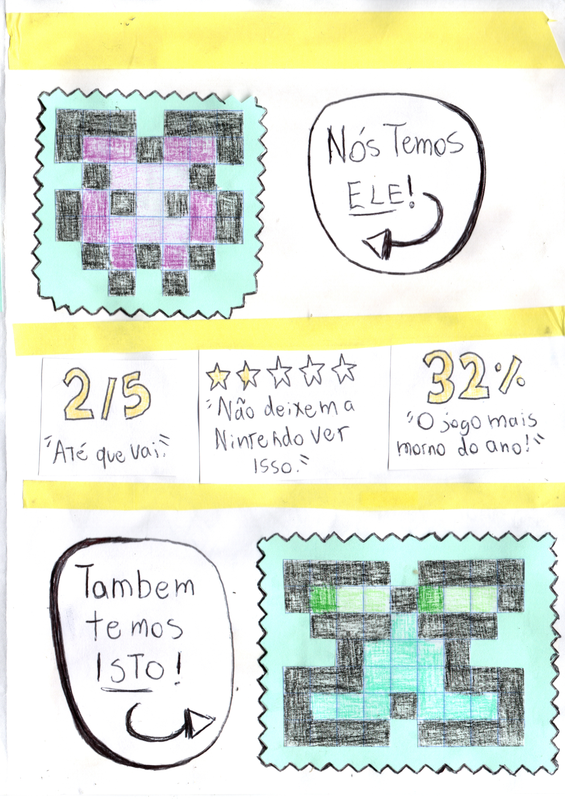 Nós Temos
ELE!
2/5
"Até que vai."
"Não deixem a
Nintendo ver
Isso."
32%
"O jogo mais
morno do ano!"
Tambem
temos
ISTO!